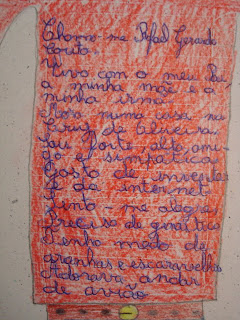 Chamo-me Rafael Gerardo
Couto
Vivo com o meu Pai
a minha mãe e a
minha irmã
Moro numa casa na
Cruz de Oliveira
Sou forte alto ami-
go e simpático
Gosto de
e da internet
Sinto-me alegre
Preciso de ginástica
Tenho medo de
aranhas e escaravelhos
Adorava andar
de avião